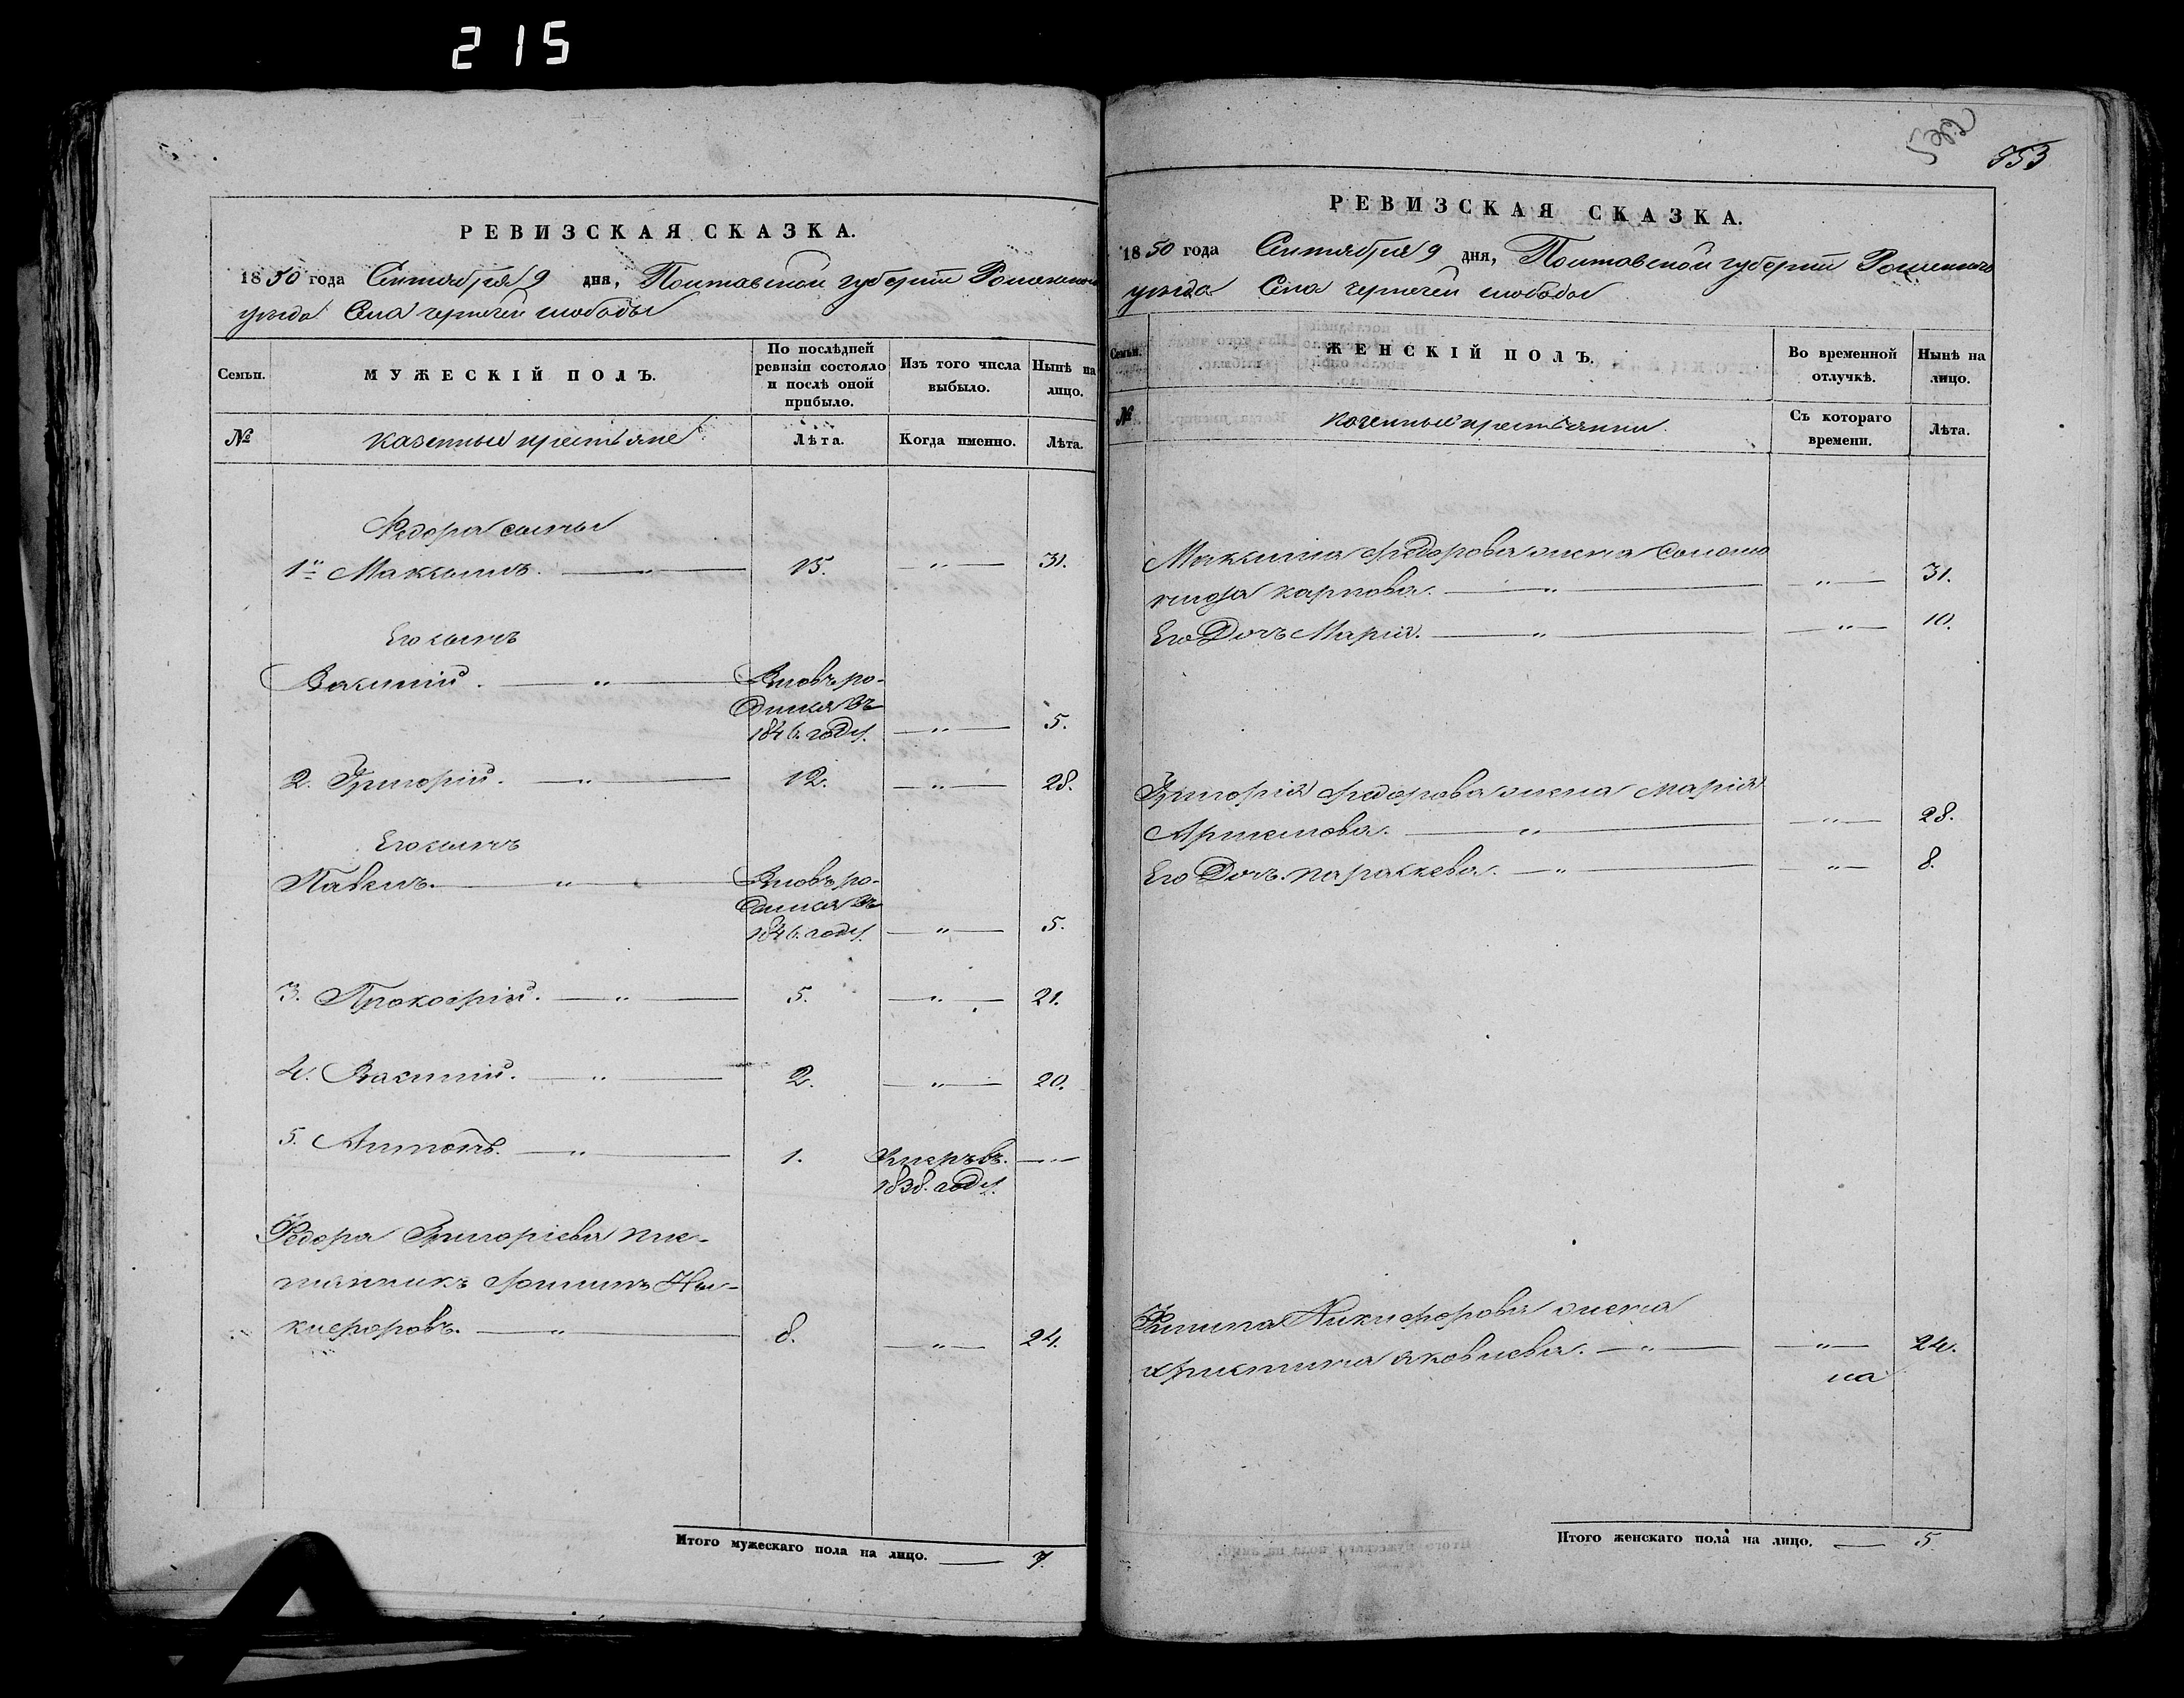 215
РЕВИЗСКАЯ СКАЗКА.
1850 года Сентября 9 дня, Полтавской губернии Роменскаго
уезда Села чернечей слободы
Семьи.
МУЖЕСКІЙ ПОЛЪ.
По послѣдней ревизіи состояло и послѣ оной прибыло.
Изъ того числа выбыло.
Нынѣ на лицо.
№
казенные крестьяне
Лѣта.
Когда именно.
Лѣта.
Федора сыны
1й Максимъ. — „ — 15. — „ — 31.
Его сынъ
Василій. — „ — Вновь ро-
дился въ
1846. году. — „ — 5.
2. Григорій. — „ — 12. — „ — 28.
Его сынъ
Павелъ. — „ — Вновь ро-
дился въ
1846. году. — „ — 5.
3. Прокофій. — „ — 5. — „ — 21.
4. Василій. — „ — 2. — „ — 20.
5. Антонъ. — „ — 1. Умеръ въ. — „ —
1838. году.
Федора Григоріева пле-
мянникъ Филипъ Ни-
кифоровъ. — „ — 8. — „ — 24.
Итого мужескаго пола на лицо. — 7.
553
РЕВИЗСКАЯ СКАЗКА.
1850 года Сентября 9 дня, Полтавской губернии Роменскаго
уезда Села чернечей слободы
Семьи.
ЖЕНСКІЙ ПОЛЪ.
Во временной отлучкѣ.
Нынѣ на лицо.
№
казенные крестьянки.
Съ котораго времени.
Лѣта.
Максима Федорова жена Соломо
нида карпова. — „ — — „ — 31.
Его Дочь Марія. — „ — — „ — 10.
Григорія Федорова жена Марія
Артемова. — „ — — „ — 28.
Его Дочь. параскева. — „ — — „ — 8.
Филипа Никифорова жена
христина яковлева. — „ — — „ — 24.
на
Итого женскаго пола на лицо. — 5